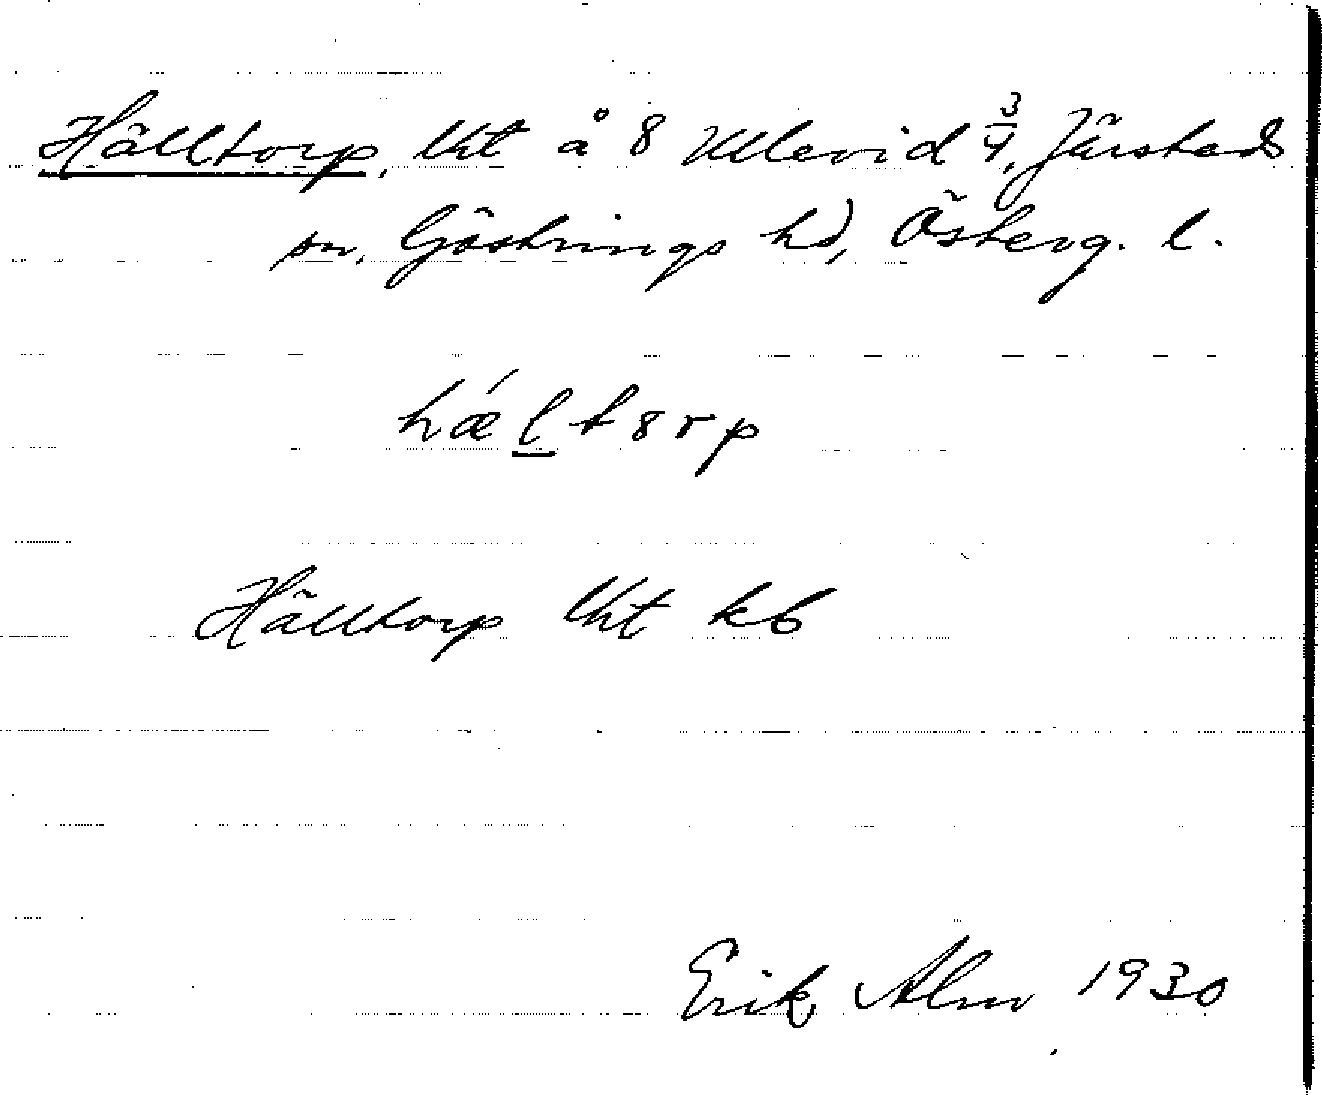 Hälltorp, lht å 8 Ullevid 3/4, Järstads
sn, Göstrings hd, Österg. l.
hæ´ltorp
Hälltorp lht kb
Erik Alm 1930